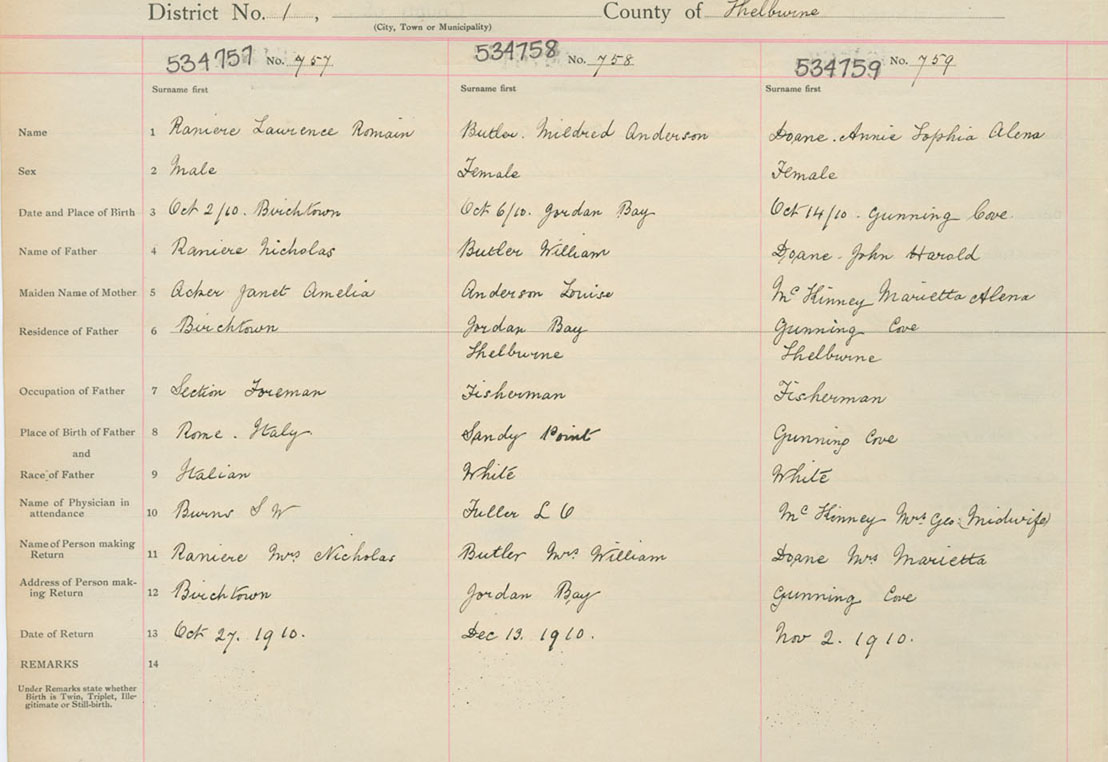 District No. 1, County of Shelburne
(City, Town or Municipality)
534757 No. 757 534758 No. 758 534759 No. 759
Surname first Surname first Surname first
Name 1 Raniere Lawrence Romain Butler. Mildred Anderson Doane. Annie Sophia Alena
Sex 2 Male Female Female
Date and Place of Birth 3 Oct 2/10. Birchtown Oct 6/10. Jordan Bay Oct 14/10. Gunning Cove.
Name of Father 4 Raniere Nicholas Butler William Doane. John Harold
Maiden Name of Mother 5 Acker Janet Amelia Anderson Louise Mc Kinney Marietta Alena
Residence of Father 6 Birchtown Jordan Bay Gunning Cove
Shelburne Shelburne
Occupation of Father 7 Section Foreman Fisherman Fisherman
Place of Birth of Father 8 Rome. Italy Sandy Point Gunning Cove
and
Race of Father 9 Italian White White
Name of Physician in
attendance 10 Burns S W Fuller L O Mc Kinney Mrs Geo. (Midwife)
Name of Person making
Return 11 Raniere Mrs Nicholas Butler Mrs William Doane Mrs Marietta
Address of Person mak-
ing Return 12 Birchtown Jordan Bay Gunning Cove
Date of Return 13 Oct 27. 1910. Dec 13. 1910. Nov 2. 1910.
REMARKS 14
Under Remarks state whether
Birth is Twin, Triplet, Ille-
gitimate or Still-birth.